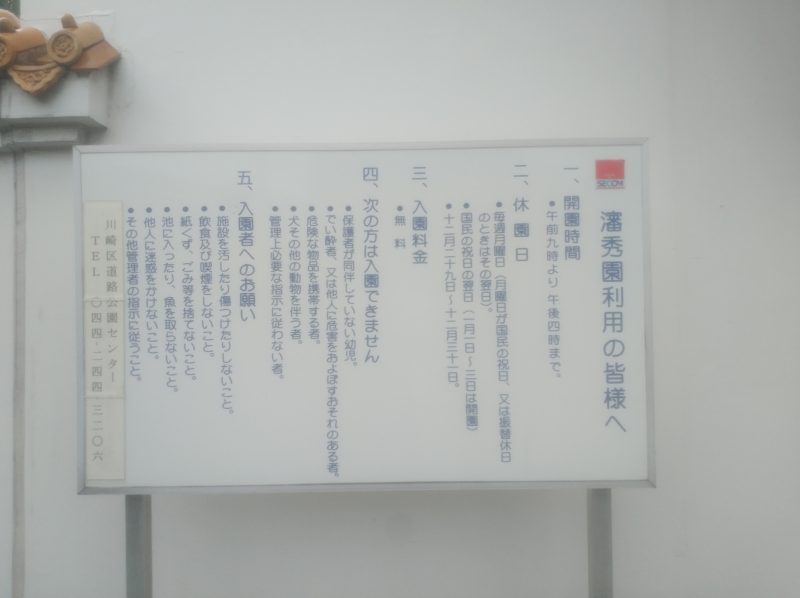 SECOM
瀋秀園利用の皆様へ
一、開園時間
●午前九時より 午後四時まで。
二、休園日
●毎週月曜日(月曜日が国民の祝日、又は振替休日
のときはその翌日)。
●国民の祝日の翌日(一月一日~三日は開園)
●十二月二十九日~十二月三十一日。
三、入園料金
●無料
四、次の方は入園できません
●保護者が同伴していない幼児。
●でい酔者、又は他人に危害をおよぼすおそれのある者。
●危険な物品を携帯する者。
●犬その他の動物を伴う者。
●管理上必要な指示に従わない者。
五、入園者へのお願い
●施設を汚したり傷つけたりしないこと。
●飲食及び喫煙をしないこと。
●紙くず、ごみ等を捨てないこと。
●池に入ったり、魚を取らないこと。
●他人に迷惑をかけないこと。
●その他管理者の指示に従うこと。
川崎区道路公園センター
TEL 〇四四-二四四-三二〇六